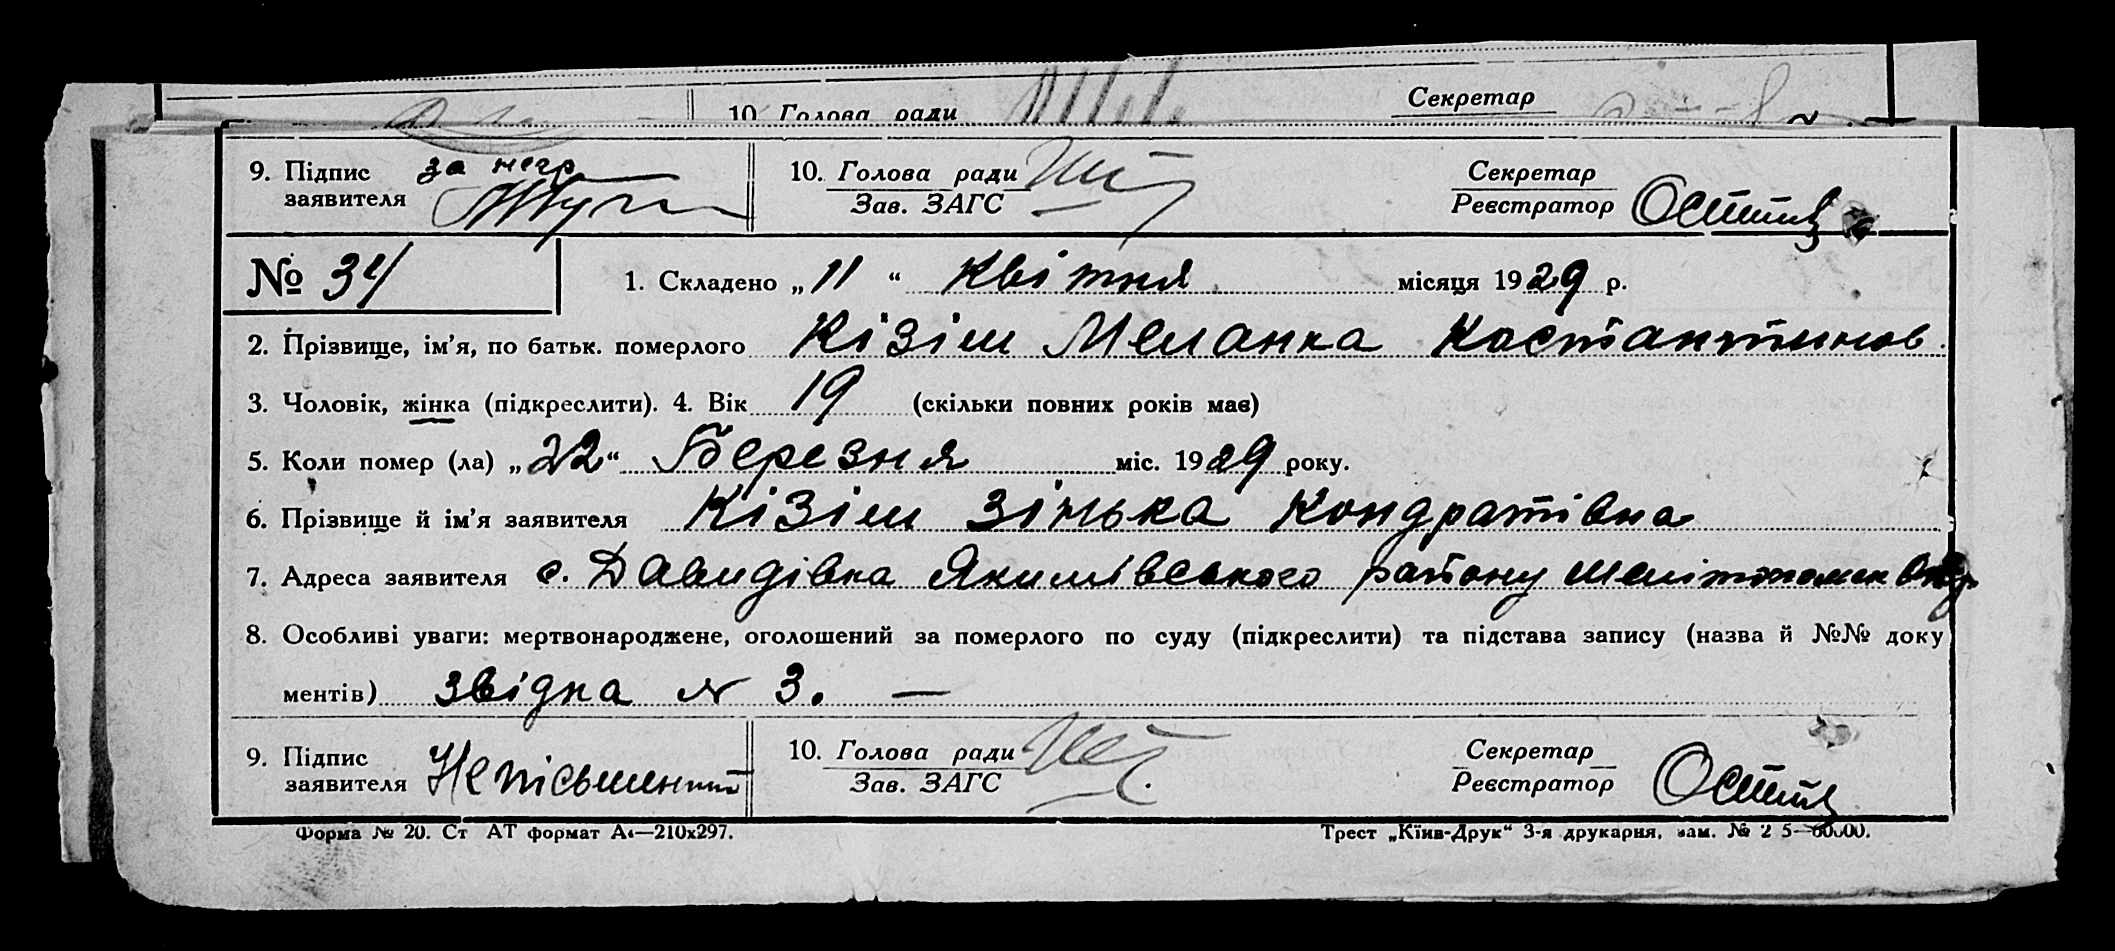 10 Голова ради Секретар
9. Підпис заявителя за негр 10. Голова ради Зав. ЗАГС Секретар Реєстратор
№ 34 1. Складено „ 11 “ Квітня місяця 1929 р.
2. Прізвище, ім’я, по батьк. померлого Кізім Меланка Костантинов.
3. Чоловік, жінка (підкреслити). 4. Вік 19 (скільки повних років має)
5. Коли помер (ла) „ 22 “ Березня міс. 1929 року.
6. Прізвище й ім’я заявителя Кізім Зінька Кондратівна
7. Адреса заявителя с. Давидівка Якимівського району Мелітопольск Окр
8. Особливі уваги: мертвонароджене, оголошений за померлого по суду (підкреслити) та підстава запису (назва й №№ доку
ментів) звідка № 3. —
9. Підпис заявителя Неписьменний 10. Голова ради Зав. ЗАГС Секретар Реєстратор
Форма № 20. Ст АТ формат А4—210х297. Трест „Київ-Друк“ 3-я друкарня, зам. № 2 5—60000.